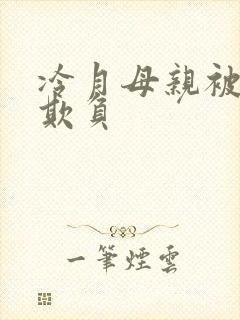 冷月母親被
欺負
一筆煙雲